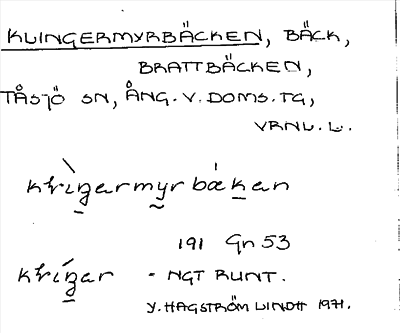 KLINGERMYRBÄCKEN, BÄCK,
BRATTBÄCKEN,
TÅSJÖ SN, ÅNG. V. DOMS. TG,
VRNL. L.
krìŋarmyr bákan
191 Gn 53
kríŋar - NGT RUNT.
Y. HAGSTRÖM LINDH 1971.